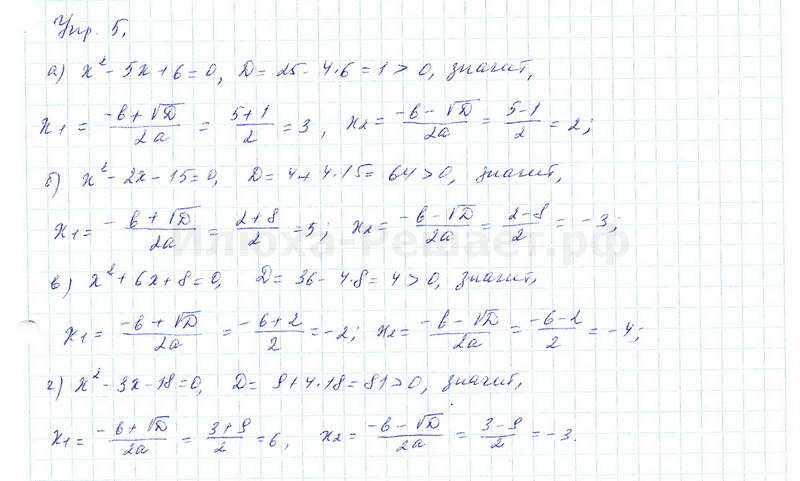 Упр. 5.
а) x² - 5x + 6 = 0, D = 25 - 4·6 = 1 > 0, значит,
x₁ = (-b + √D)/2a = (5+1)/2 = 3, x₂ = (-b - √D)/2a = (5-1)/2 = 2;
б) x² - 2x - 15 = 0, D = 4 + 4·15 = 64 > 0, значит,
x₁ = -(b + √D)/2a = (2+8)/2 = 5; x₂ = (-b - √D)/2a = (2-8)/2 = -3;
Илюха-Решает.рф
в) x² + 6x + 8 = 0, D = 36 - 4·8 = 4 > 0, значит,
x₁ = (-b + √D)/2a = (-6+2)/2 = -2; x₂ = (-b - √D)/2a = (-6-2)/2 = -4;
г) x² - 3x - 18 = 0, D = 9 + 4·18 = 81 > 0, значит,
x₁ = (-b + √D)/2a = (3+9)/2 = 6, x₂ = (-b - √D)/2a = (3-9)/2 = -3.